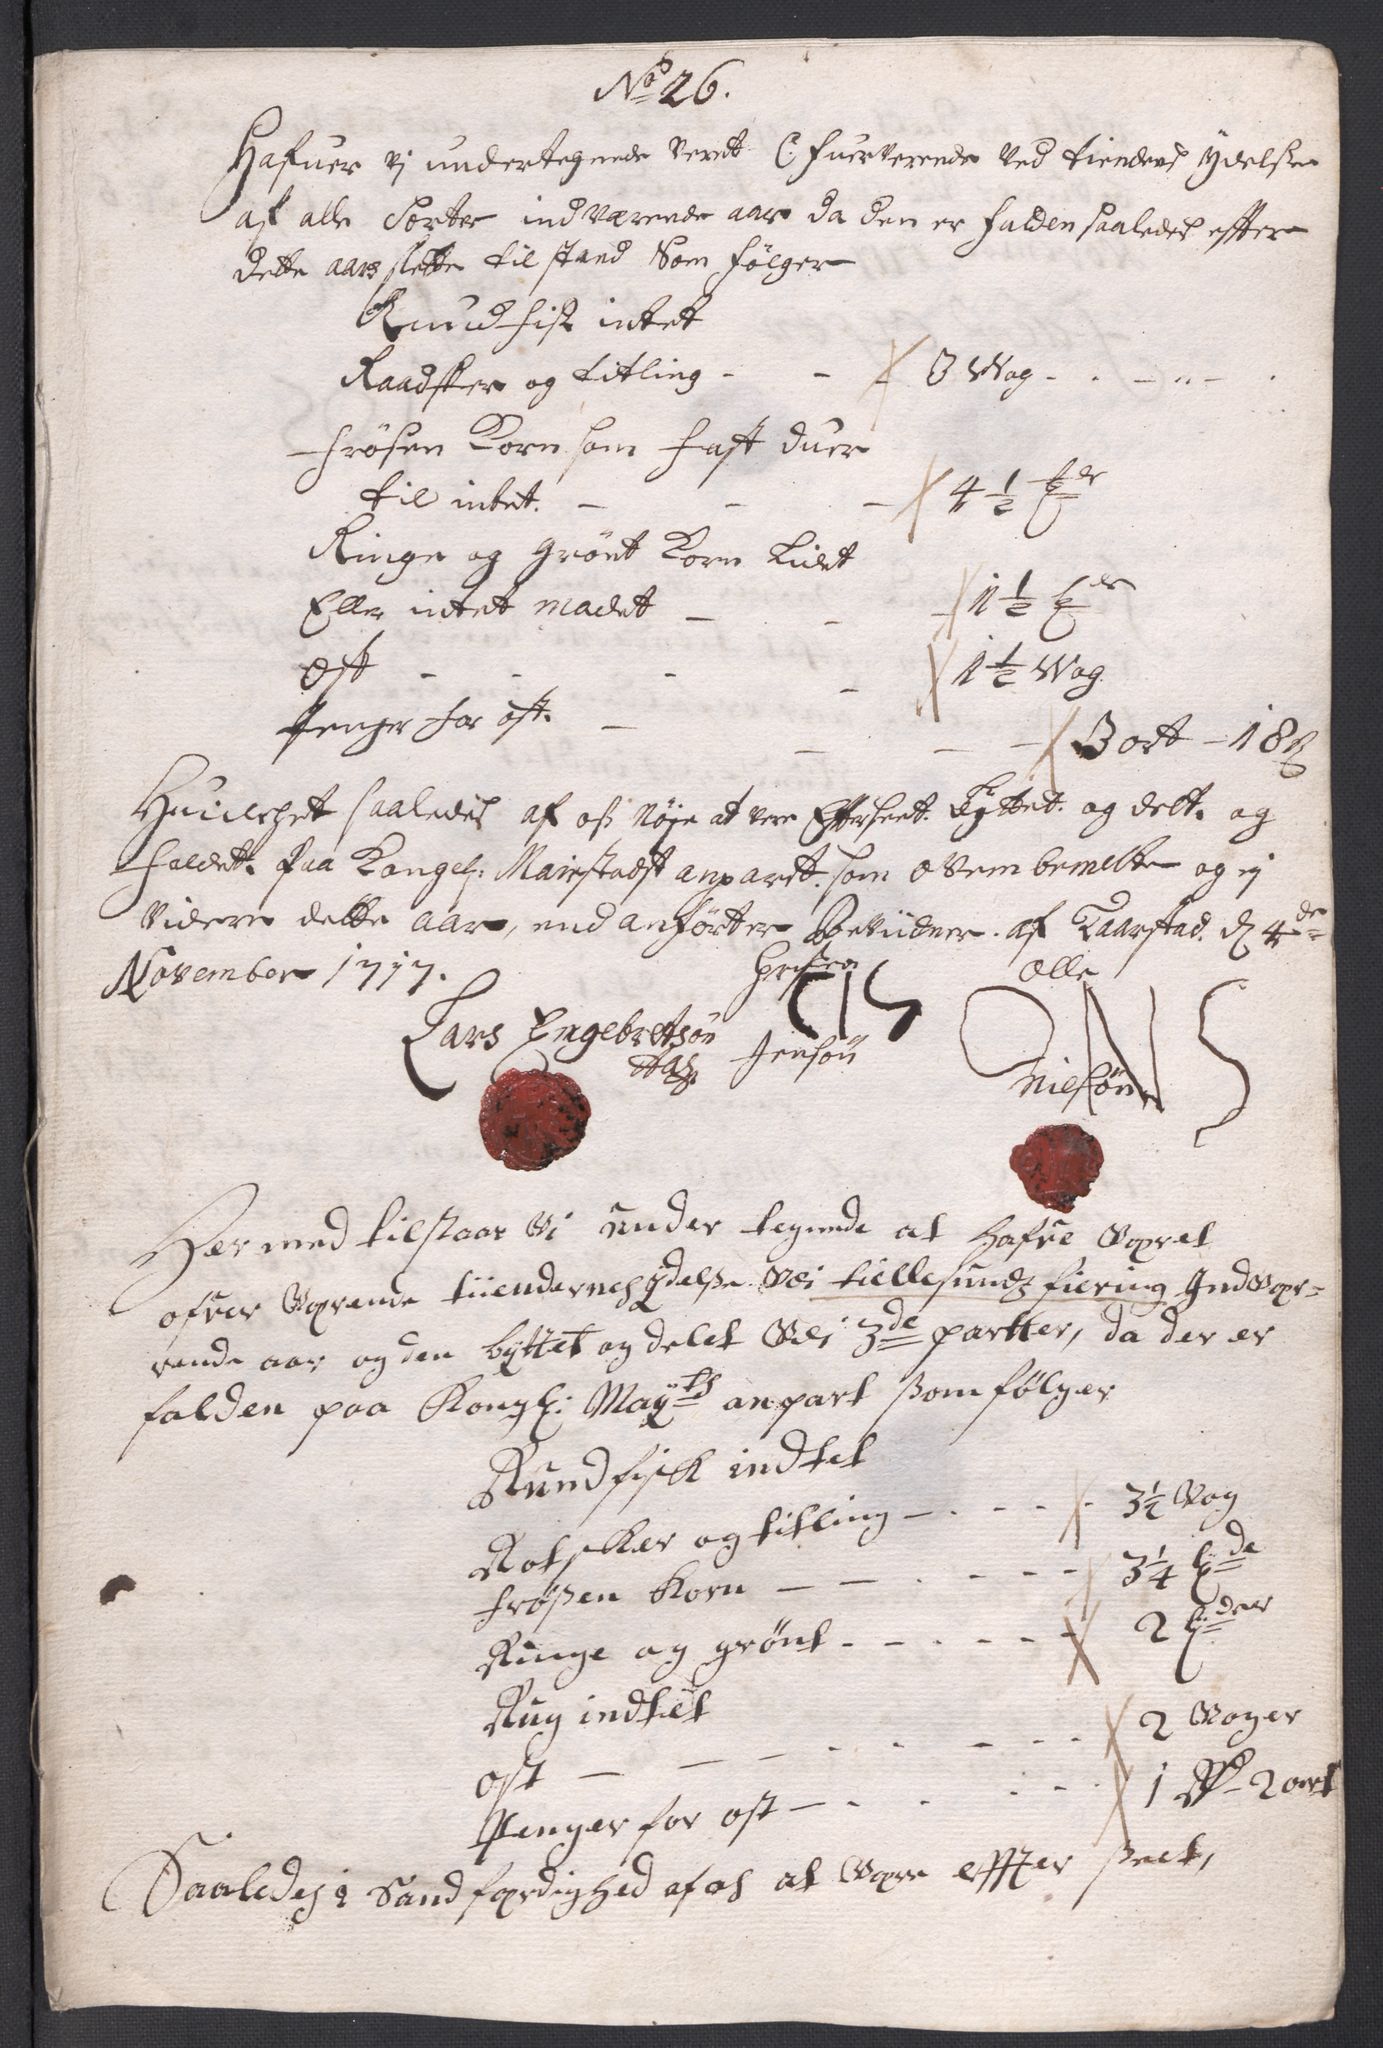 No 26.
Hafuer vj undertegnede veret Ofuerverende ved tiendens Ydelße
af alle Sorter indværende aar da den er falden saaledes effter
dette aars slette tilstand Som følger
Rundfisk intet
Raadskier og titling - - 3 Wog
frøsen Korn som fast duer
til intet. - - - 4 1/2 tr
Ringe og grönt Korn Lidet
Eller intet madet - - - 1 1/2 tr
Ost - - - - 1 1/2 Wog
Penger for ost. - - - - 3 ort - 18 ß
Huilchet saaledes af os Nøje at vere Effterseet. Byttet. og delt. og
faldet. Paa Kongel: Maiestadst anpardt. som ovembemelte og ej
videre dette aar, end anførter Beviidner. af Taarstad. d 4de
November 1717.
Lars Engebretsøn
Aas
Jensøn
Olle
ONS
Nielsøn
Hermed tilstaar Vi under tegnede at hafve Været
ofver Værende tiendernes Ydelße Vdi tiellesundz fiering Indvær-
rende aar og den byttet og delet Vdi 3de partter, da der er
falden paa Kongl: Mayts anpart ßom følger
Rundfisk indtet
Rotskier og titling - - - 3 1/2 Vog
frossen Korn - - - 3 1/4 tde
Ringe og grönt - - - 2 tder
Rug indtet
ost - - - 2 Voger
Penger for ost - - - 1 Rd - 2 ort
Saaledes i Sandfærdighed af os at Være effter ßeet,